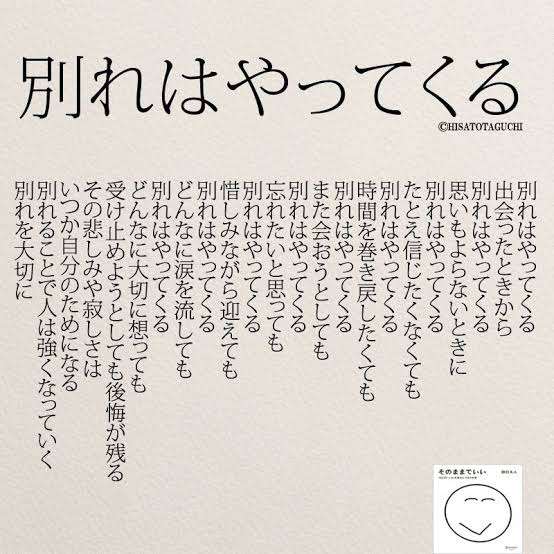 別れはやってくる
©HISATOTAGUCHI
別れはやってくる
出会ったときから
別れはやってくる
思いもよらないときに
別れはやってくる
たとえ信じたくなくても
別れはやってくる
時間を巻き戻したくても
別れはやってくる
また会おうとしても
別れはやってくる
忘れたいと思っても
別れはやってくる
惜しみながら迎えても
別れはやってくる
どんなに涙を流しても
別れはやってくる
どんなに大切に想っても
受け止めようとしても後悔が残る
その悲しみや寂しさは
いつか自分のためになる
別れることで人は強くなっていく
別れを大切に
そのままでいい